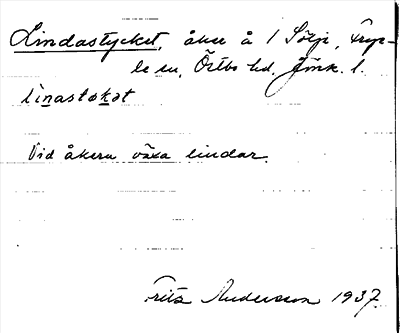 Lindastycket, åker å 1 Sölje, Frye-
le sn, Östbo hd. Jönk. l.
linastəkət
Vid åkern växa lindar.
Frits Andersson 1937.